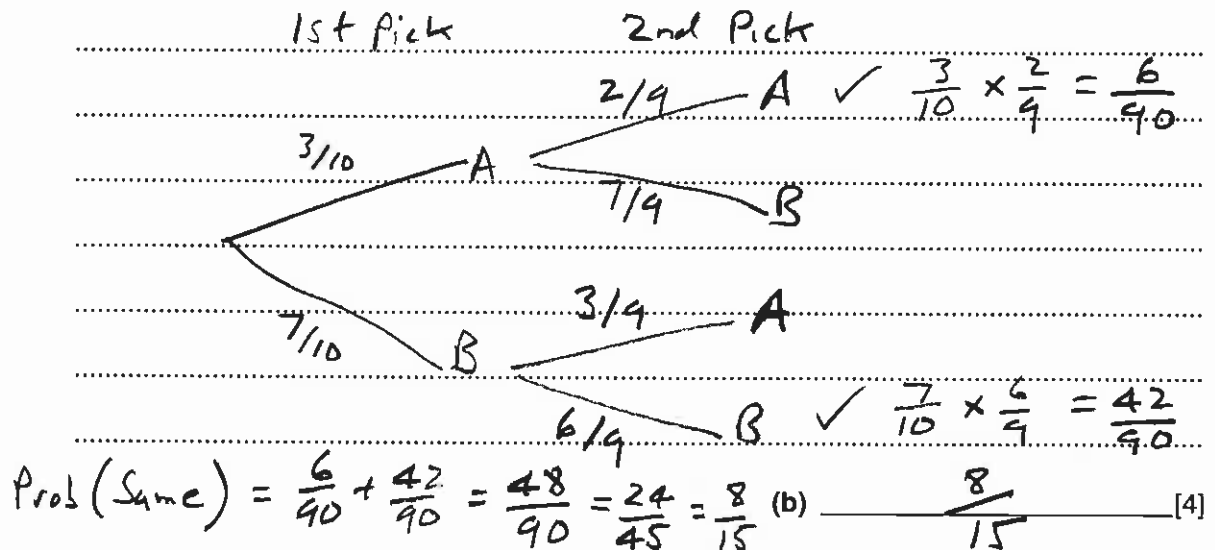 1st Pick 2nd Pick
2/9 A ✓ 3/10 × 2/9 = 6/90
3/10 A
7/9 B
3/9 A
7/10 B
6/9 B ✓ 7/10 × 6/9 = 42/90
Prob (Same) = 6/90 + 42/90 = 48/90 = 24/45 = 8/15 (b) 8/15 [4]